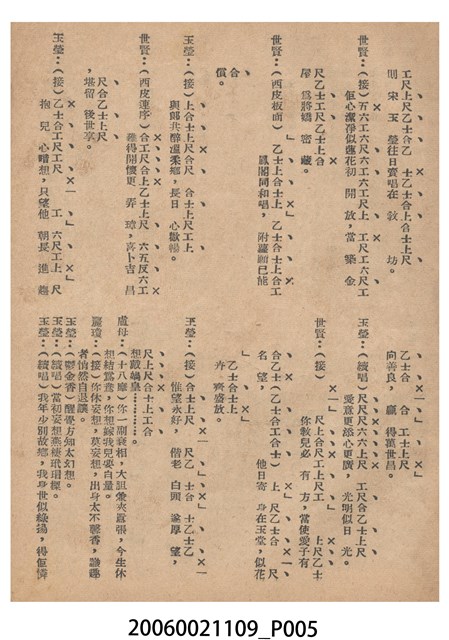 工尺上尺乙士合乙 士乙士合上合士上尺
明宋玉瑩往日賣唱在教坊。
世賢：（接）五六工六尺六工六工尺上 工尺工六尺工
佢心潔淨似蓮花初開放，當築金
尺乙士工尺乙士上合
廖爲將嬌密藏。
世賢：（西皮板面） 乙士上合士上 乙士合士上合工
鳳閣同和唱，附蘿願已能
合
償。
玉瑩：（接）上合士合上尺 尺工尺工上
與郎共醉溫柔鄉，長日心歡暢。
世賢：（西皮連序）合工尺合上乙士上尺 六五反六工
難得開懷更弄璋，喜卜吉昌
尺合乙士上尺
，堪留後世享。
玉瑩：（接）乙士合工尺工尺 工六尺工上尺
抱兒心暗想，只望他朝長進趨
乙士合 合工士上尺
向善良，贏得萬世昌。
玉瑩：（續唱）尺尺尺六六尺上 工尺合乙士上尺
愛意更添心更廣，光明似日光。
世賢：（接） 尺上合尺工上尺工 上尺乙士
你教兒必有方，當使愛子有
合乙士（乙士合工合士）上尺乙士合尺
名望，他日寄身在玉堂，似花
乙士合士上
卉齊盛放。
玉瑩：（接）合士上尺 尺乙士合士乙士乙
惟望永好，偕老白頭遂厚望，
尺上尺上合士上工合
想戲皇………。
盧母：（十八摩）你一副衰相，大諗兼夾囂張，今生休
想結鴛鴦，你想嫁我兒要自量。
麗瓊：（接）你休妄想，莫妄想，出身太不馨香，識趣
者怕然自退讓。
玉瑩：（鬱金香）醒覺方知太幻想。
玉瑩：（續唱）當初妄想燕棲玳瑁樑。
玉瑩：（續唱）我年少別故鄉，我身世似綠楊，得佢憐
20060021109_P005